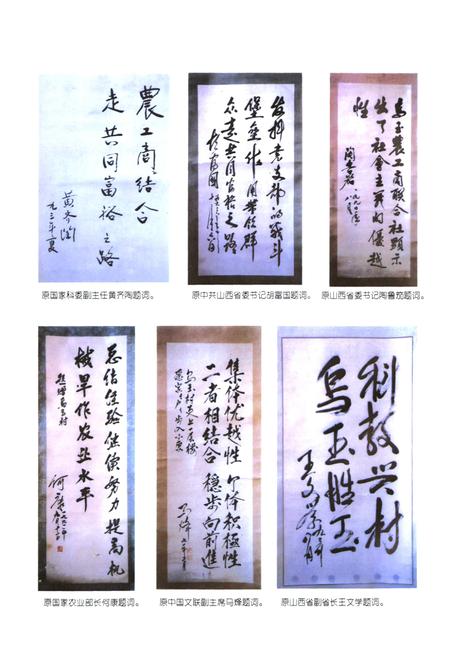 農工商结合
走共同富裕之路
黄齐陶
九三年夏
原国家科委副主任黄齐陶题词。
发挥党支部的战斗
堡垒作用带领群
众走共同富裕之路
胡富国
原中共山西省委书记胡富国题词。
乌玉農工商联合社顯示
出了社會主义的優越
性
陶鲁笳
原山西省委书记陶鲁笳题词。
总结经验继续努力提高机
械旱作农业水平
何康
原国家农业部长何康题词。
集体优越性个体积极性
二者相结合稳步向前進
马烽
原中国文联副主席马烽题词。
科教兴村
乌玉胜玉
王文学
原山西省副省长王文学题词。